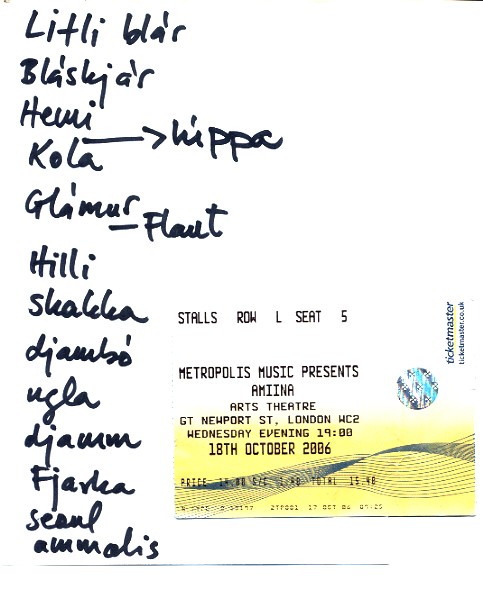 Litli blár
Bláskjár
Hemi
Kola → hippa
Glámur
– Flaut
Hilli
skakka
djambó
ugla
djamm
Fjarka
seoul
ammalis
STALLS ROW L SEAT 5
METROPOLIS MUSIC PRESENTS
AMIINA
ARTS THEATRE
GT NEWPORT ST, LONDON WC2
WEDNESDAY EVENING 19:00
18TH OCTOBER 2006
PRICE TOTAL 15.40
17 OCT 06
ticketmaster
ticketmaster.co.uk